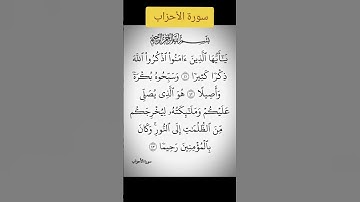 سورة الأحزاب
بِسْمِ اللَّهِ الرَّحْمَٰنِ الرَّحِيمِ
يَٰٓأَيُّهَا ٱلَّذِينَ ءَامَنُواْ ٱذْكُرُواْ ٱللَّهَ
ذِكْرًا كَثِيرًا ٤١ وَسَبِّحُوهُ بُكْرَةً
وَأَصِيلًا ٤٢ هُوَ ٱلَّذِى يُصَلِّى
عَلَيْكُمْ وَمَلَٰٓئِكَتُهُۥ لِيُخْرِجَكُم
مِّنَ ٱلظُّلُمَٰتِ إِلَى ٱلنُّورِ ۚ وَكَانَ
بِٱلْمُؤْمِنِينَ رَحِيمًا ٤٣
سورة الأحزاب